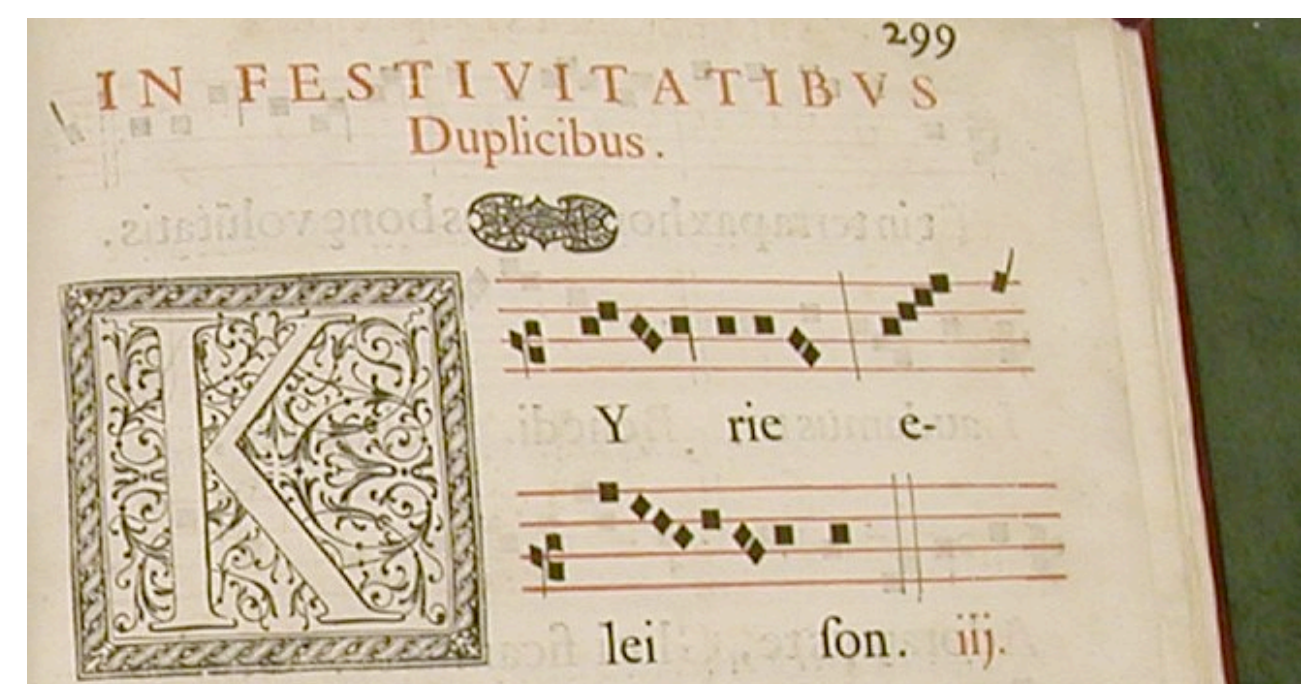 299
IN FESTIVITATIBVS
Duplicibus.
KYrie e-
leiſon. iij.